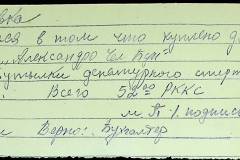 вка
ся в том что куплено д
„Александров Ел Бун"
бутылки денатурного спирт
: Всего 52 00 РККС
м П 1. подпись
и Верно: Бухгалтер